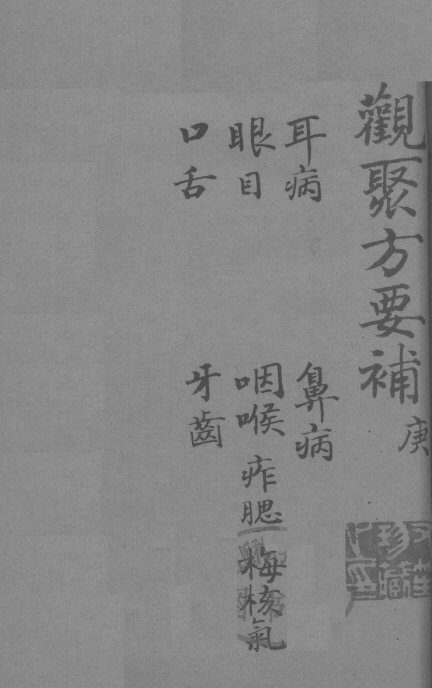 觀聚方要補 庚
耳病 鼻病
眼目 咽喉 痄腮 梅核氣
口舌 牙齒